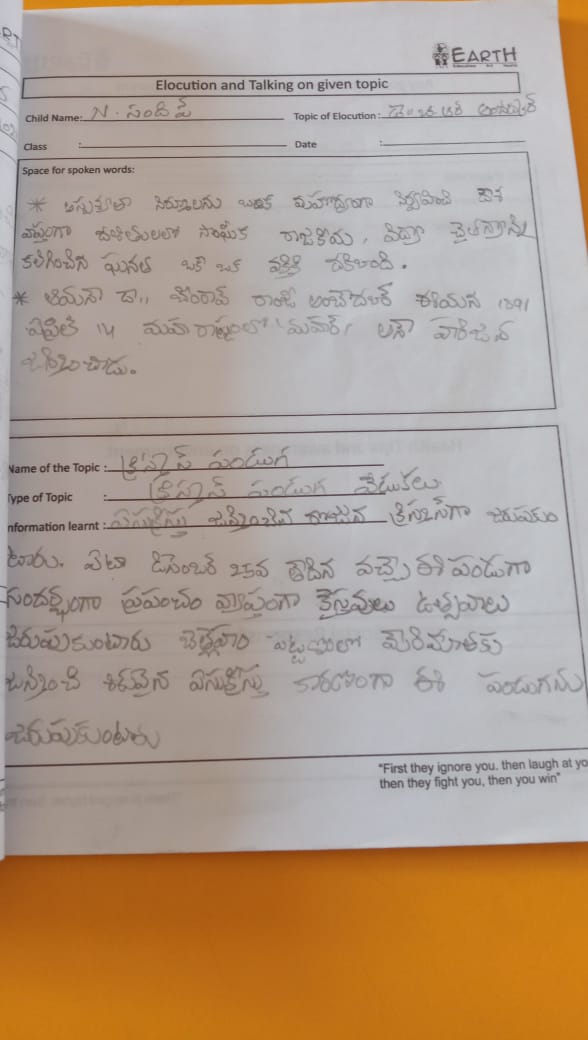 EARTH
Elocution and Talking on given topic
Child Name: N. సందీప్ Topic of Elocution: డా|| బి.ఆర్ అంబేద్కర్
Class : Date :
Space for spoken words:
* నిర్మూలనను దేశ
వ్యాప్తంగా దళితులలో సాంఘిక రాజకీయ, విద్యా చైతన్యాన్ని
కలిగించిన ఘనత ఒకే ఒక వ్యక్తికి దక్కింది.
* ఆయనే డా|| రాంజీ అంబేదకర్ ఈయన 1891
ఏప్రిల్ 14 మహారాష్ట్రలో 'మహర్' అనే
జన్మించాడు.
Name of the Topic : క్రిస్మస్ పండుగ
Type of Topic : క్రిస్మస్ పండుగ వేడుకలు
Information learnt : ఏసుక్రీస్తు జన్మించిన రోజున క్రిస్మస్‌గా జరుపుకుం
టారు. ఏటా డిసెంబర్ 25వ తేదిన వచ్చే ఈ పండుగా
సందర్భంగా ప్రపంచం వ్యాప్తంగా క్రైస్తవులు ఉత్సవాలు
జరుపుకుంటారు బెత్లేహం పట్టణంలో మేరిమాతకు
జన్మించి ఏసుక్రీస్తు కారణంగా ఈ పండుగను
జరుపుకుంటారు
"First they ignore you. then laugh at yo
then they fight you, then you win"